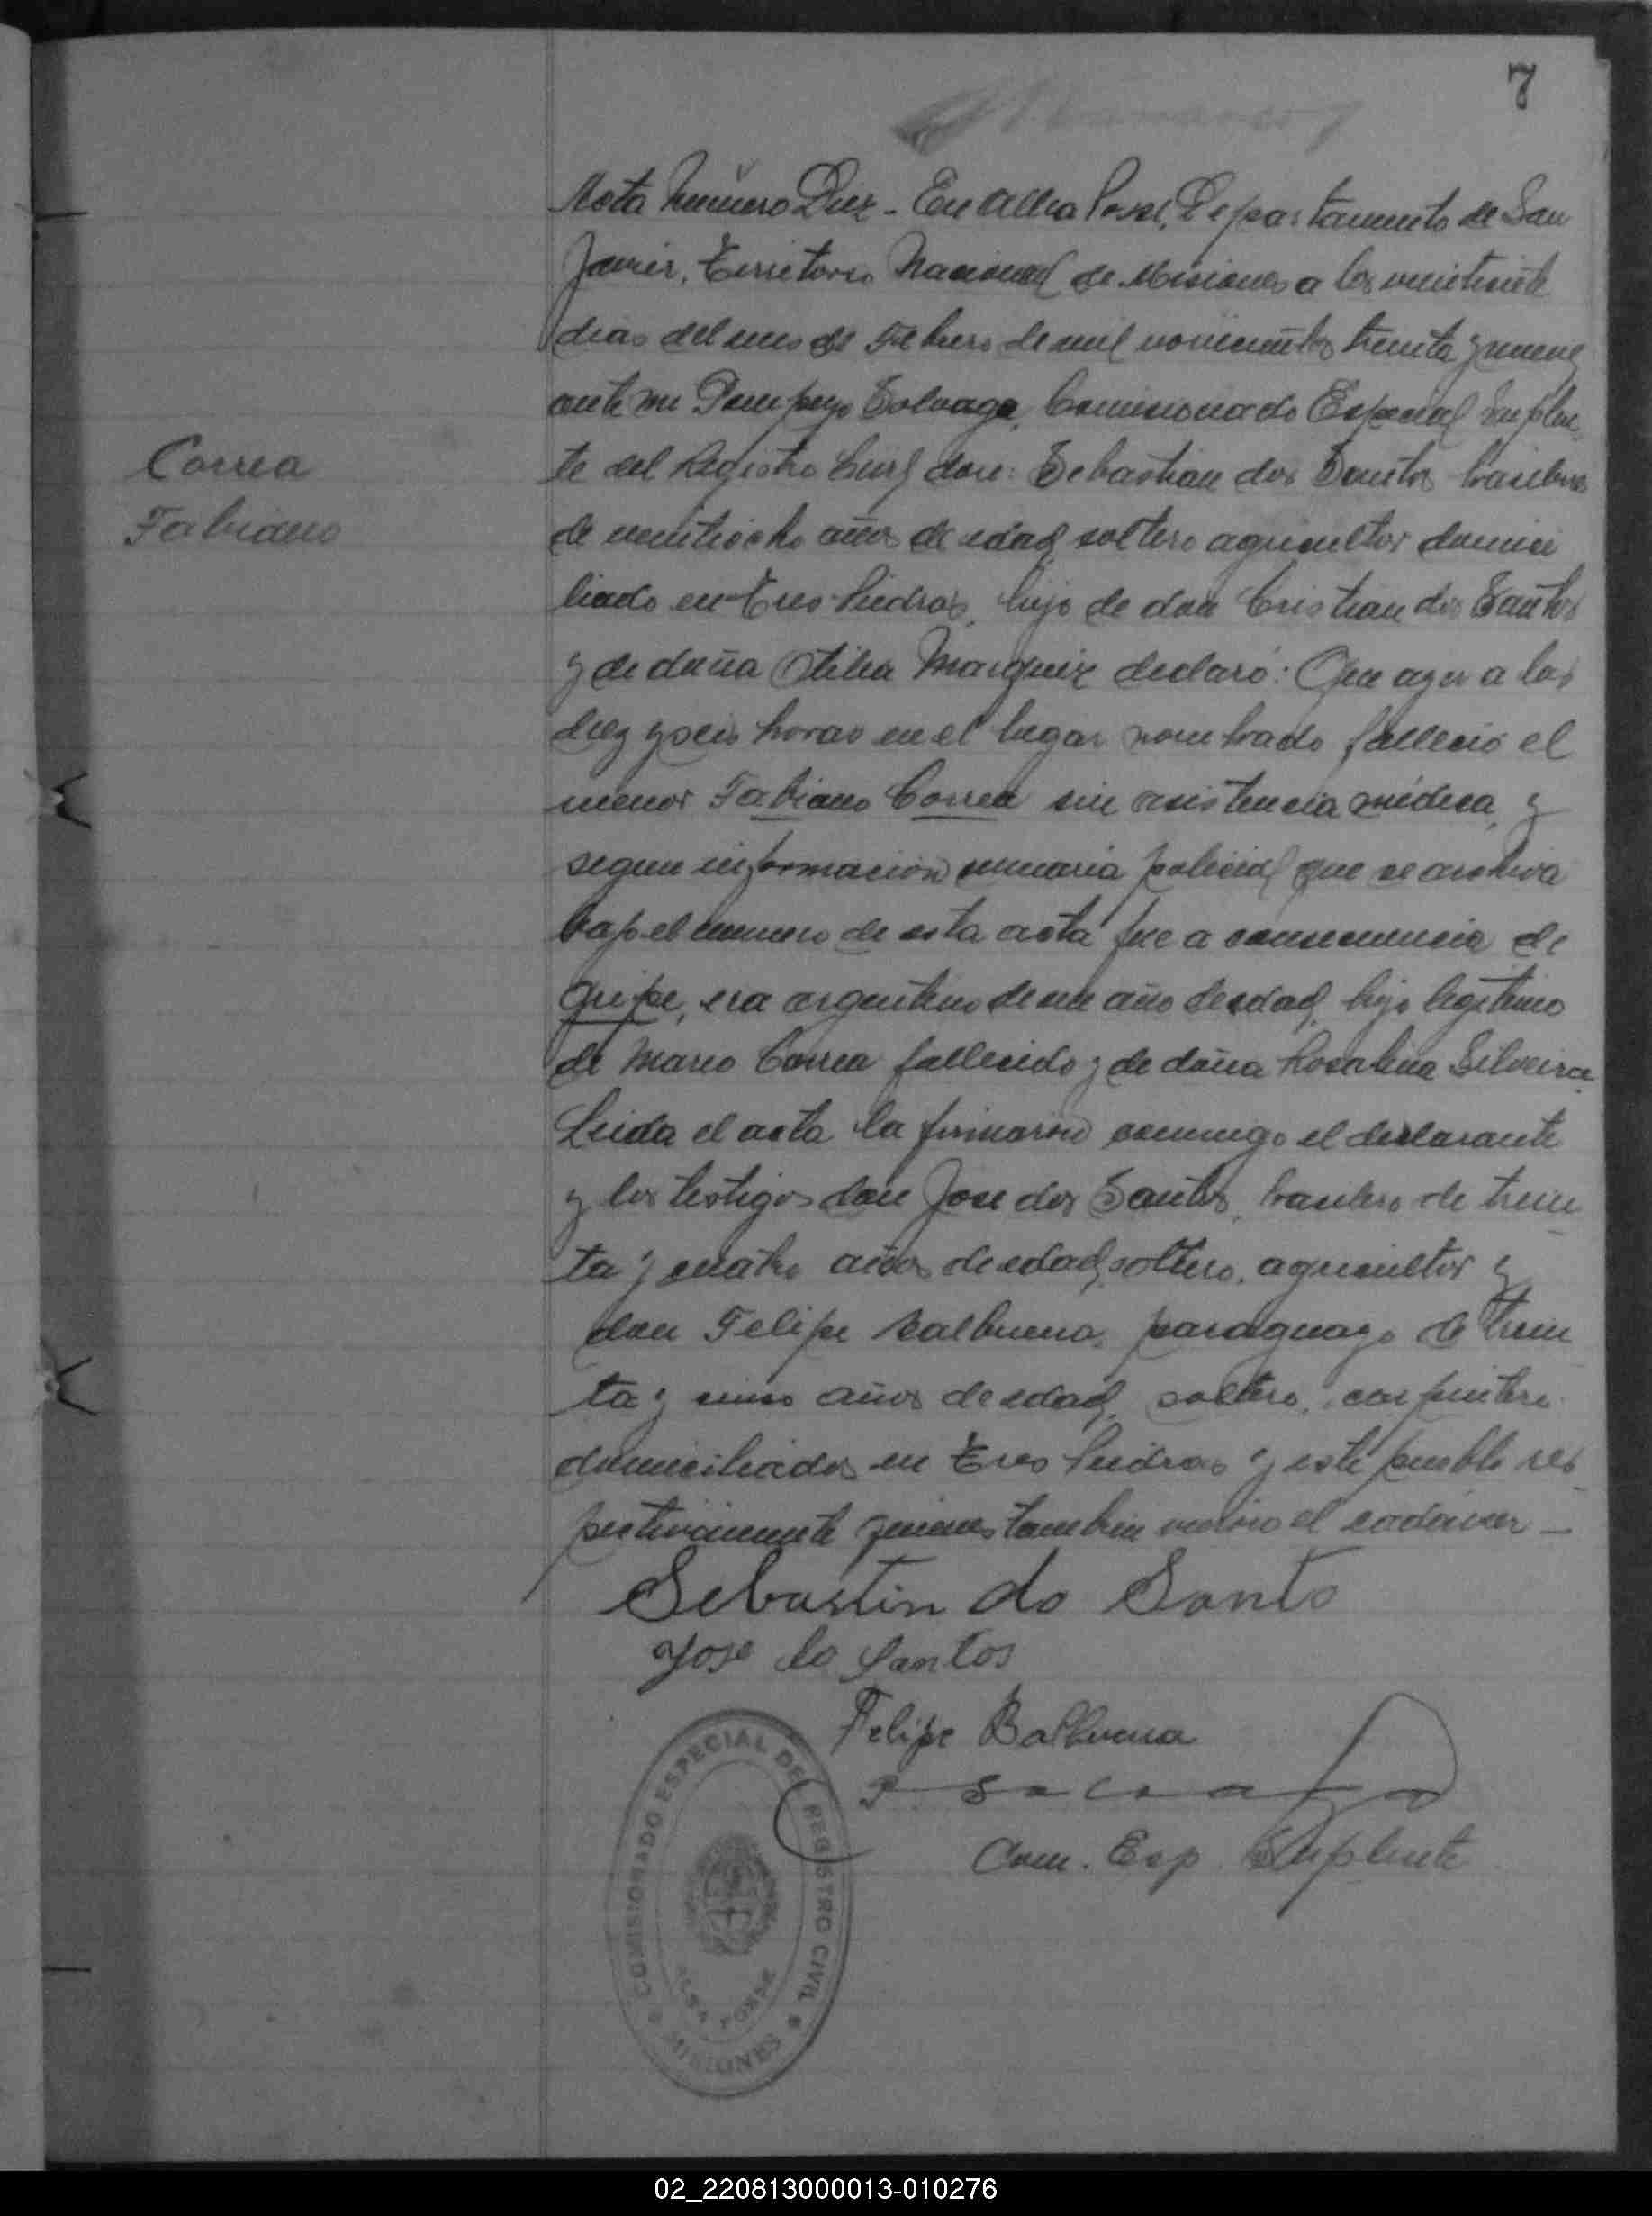 7
Acta Número Diez - En Alba Posse, Departamento de San
Javier, Territorio Nacional de Misiones a los veintisiete
dias del mes de Febrero de mil novecientos treinta y nueve
ante mi Pompeyo Salvago, Comisionado Especial Suplen
te del Registro Civil don: Sebastian dos Santos brasilero
de veintiocho años de edad soltero agricultor domici
liado en Tres Piedras, hijo de don Cristian dos Santos
y de doña Otilia Marquez declaró: Que ayer a las
diez y seis horas en el lugar nombrado falleció el
Correa
Fabiano
menor Fabiano Correa sin asistencia médica, y
segun información sumaria policial que se archiva
bajo el numero de esta acta fue a consecuencia de
gripe, era argentino de un año de edad, hijo legitimo
de Mario Correa fallecido y de doña Rosalina Silveira.
Leida el acta la firmaron conmigo el declarante
y los testigos don Jose dos Santos, brasilero de trein
ta y cuatro años de edad, soltero, agricultor y
don Felipe Balbuena, paraguayo de trein
ta y cinco años de edad, soltero, carpintero
domiciliados en Tres Piedras y este pueblo res
pectivamente quienes tambien vieron el cadaver -
Sebastin do Santo
Jose do Santos
Felipe Balbuena
Com. Esp. Suplente
COMISIONADO ESPECIAL DEL REGISTRO CIVIL
ALBA POSSE
MISIONES
02_220813000013-010276